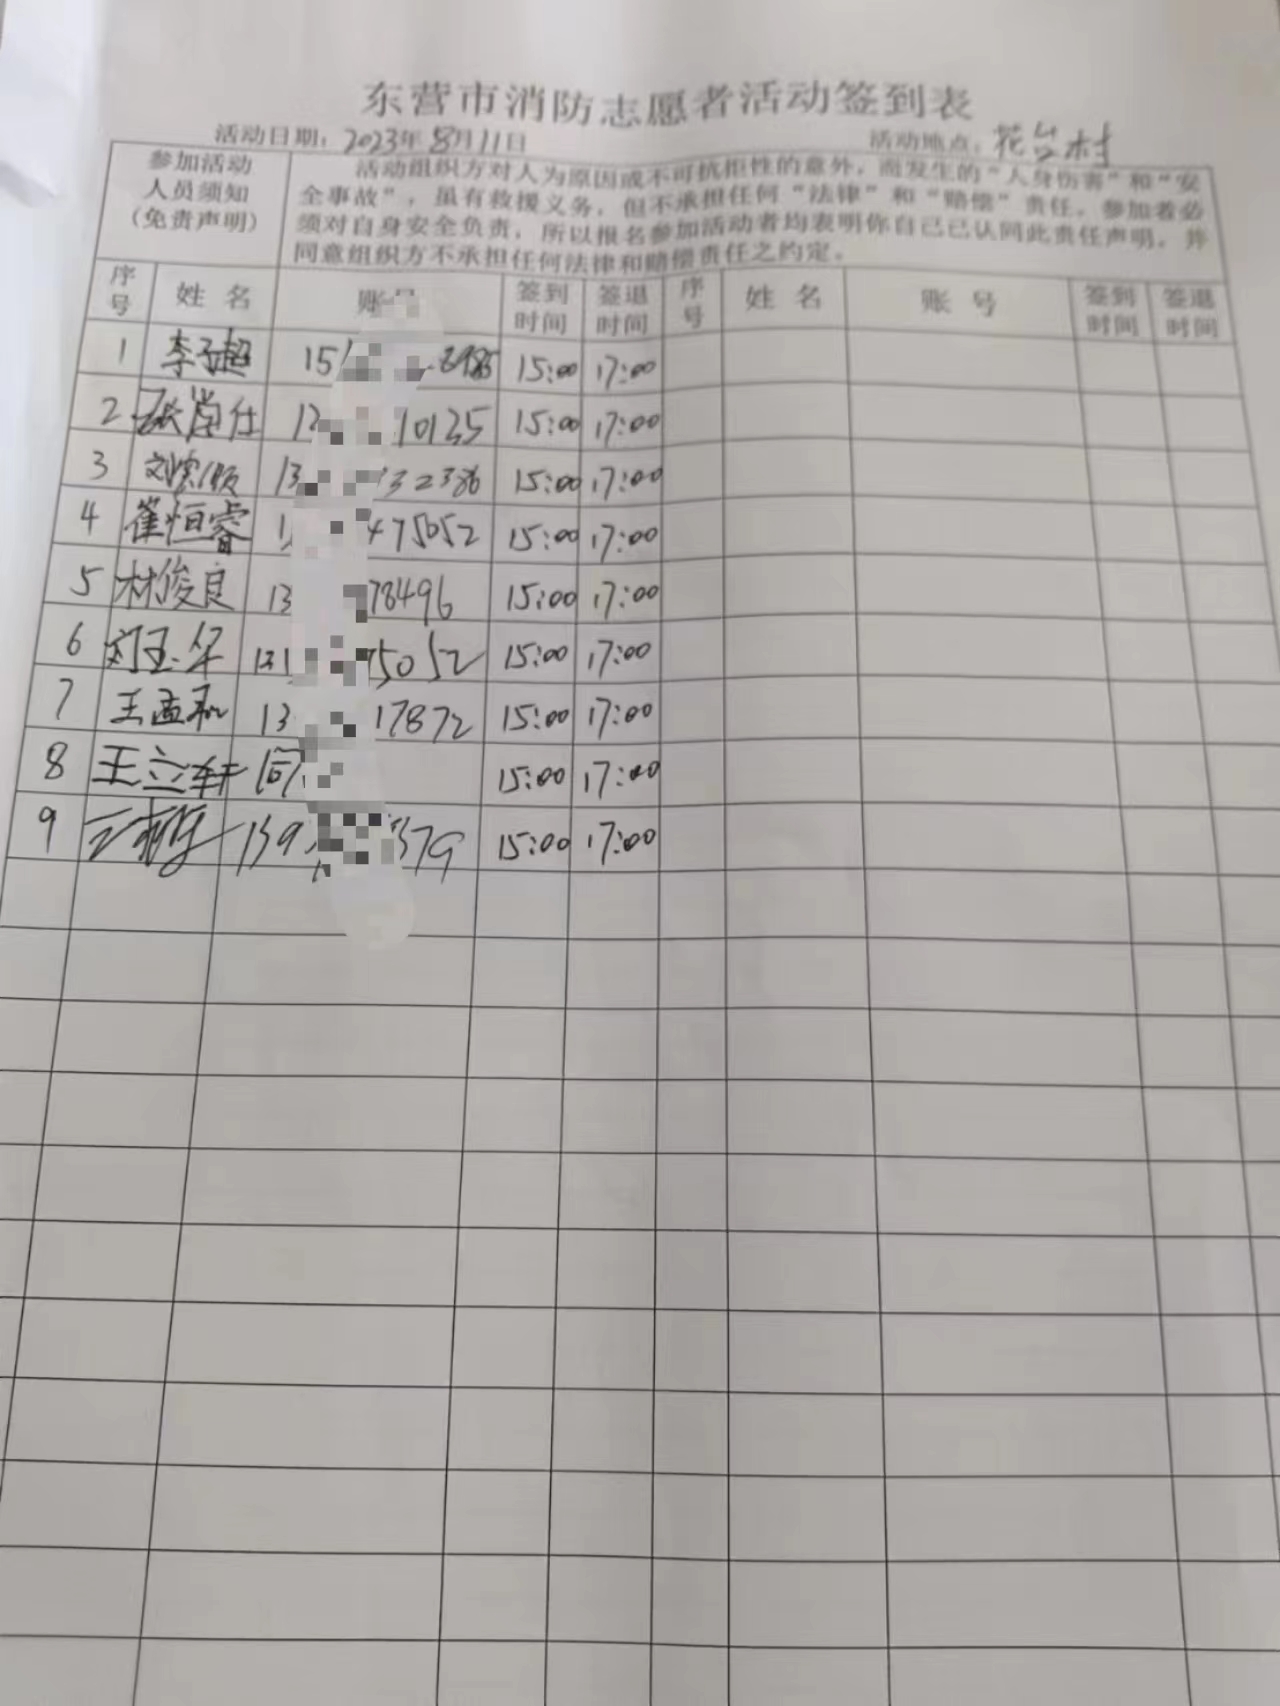 东营市消防志愿者活动签到表
活动日期：2023年8月11日 活动地点：花台村
参加活动
人员须知
（免责声明）
活动组织方对人为原因或不可抗拒性的意外，而发生的“人身伤害”和“安
全事故”，虽有救援义务，但不承担任何“法律”和“赔偿”责任。参加者必
须对自身安全负责，所以报名参加活动者均表明你自己已认同此责任声明，并
同意组织方不承担任何法律和赔偿责任之约定。
序号 姓名 账号 签到时间 签退时间 序号 姓名 账号 签到时间 签退时间
1 李子超 15 15:00 17:00
2 10135 15:00 17:00
3 13 332386 15:00 17:00
4 崔恒睿 475052 15:00 17:00
5 林俊良 13 78496 15:00 17:00
6 刘玉华 131 75052 15:00 17:00
7 王孟和 13 17872 15:00 17:00
8 王立轩 同 15:00 17:00
9 139 379 15:00 17:00